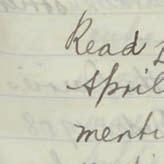 Read
April
menti